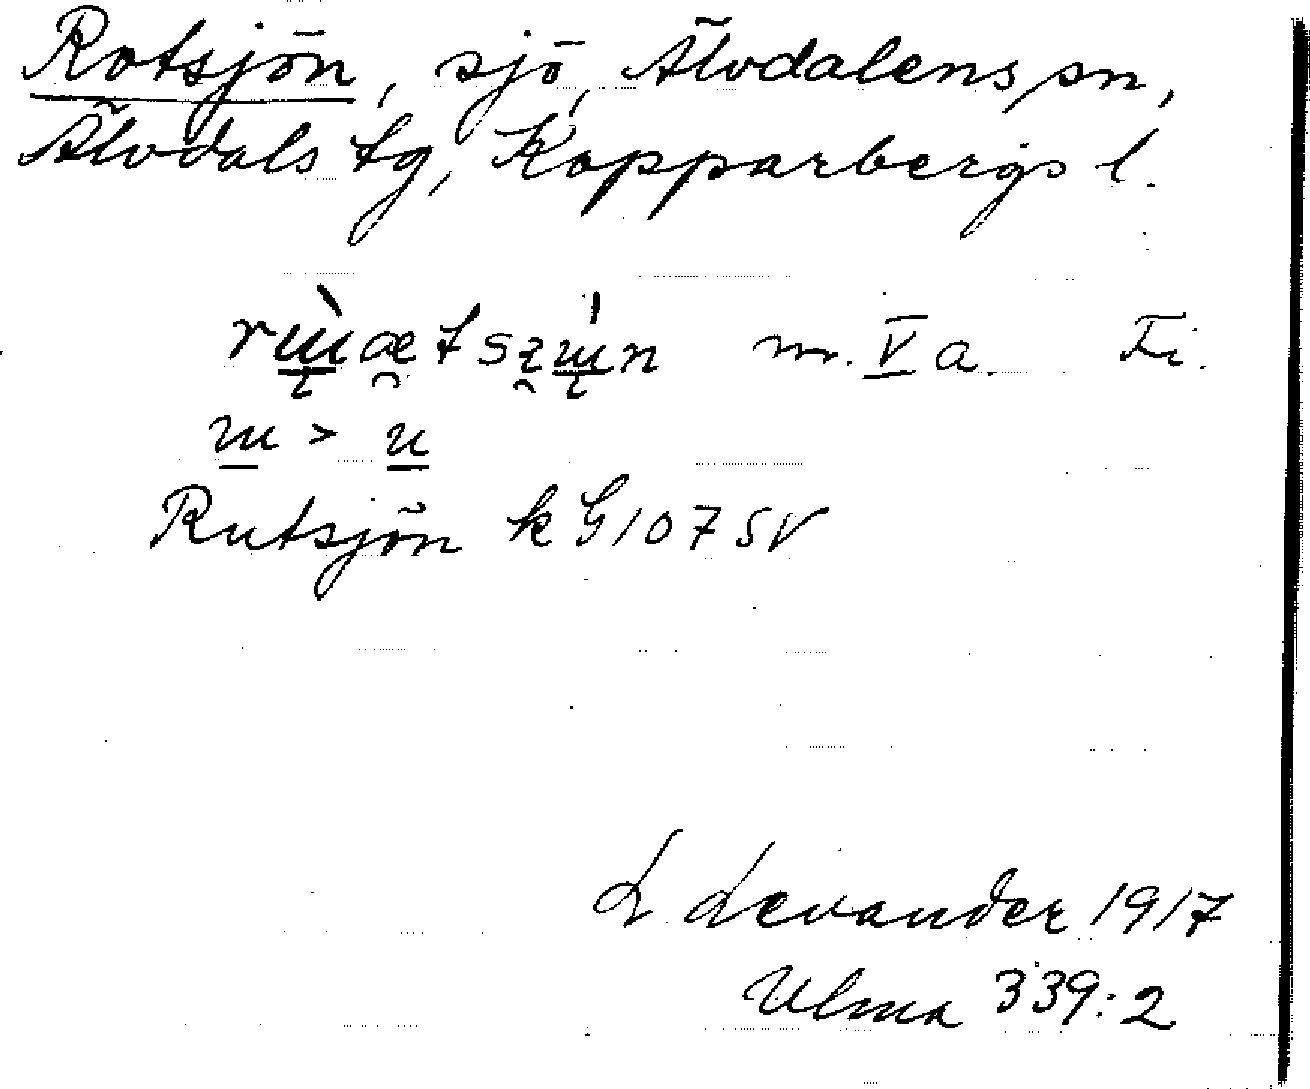 Rotsjön, sjö, Älvdalens sn,
Älvdals tg, Kopparbergs l.
m. V a. Fi.
Rutsjön k G 107 SV
L Levander 1917
Ulma 339:2